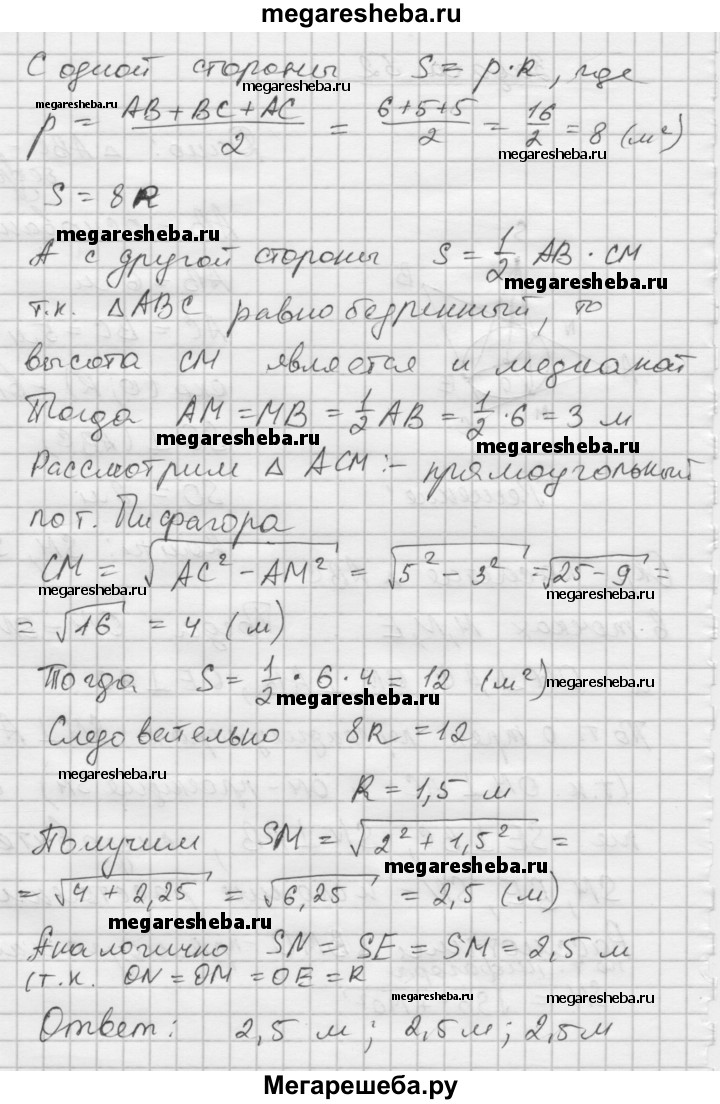 megaresheba.ru
С одной стороны S = p·R, где
megaresheba.ru
p = (AB + BC + AC)/2 = (6+5+5)/2 = 16/2 = 8 (м²)
megaresheba.ru
megaresheba.ru
S = 8R
megaresheba.ru
А с другой стороны S = 1/2 AB · CM
megaresheba.ru
т.к. ΔABC равнобедренный, то
высота CM является и медианой
Тогда AM = MB = 1/2 AB = 1/2 · 6 = 3 м
megaresheba.ru
megaresheba.ru
Рассмотрим Δ ACM :- прямоугольный
по т. Пифагора
CM = √(AC² - AM²) = √(5² - 3²) = √(25 - 9) =
megaresheba.ru
megaresheba.ru
= √16 = 4 (м)
Тогда S = 1/2 · 6 · 4 = 12 (м²)
megaresheba.ru
megaresheba.ru
Следовательно 8R = 12
megaresheba.ru
R = 1,5 м
Получим SM = √(2² + 1,5²) =
megaresheba.ru
= √(4 + 2,25) = √6,25 = 2,5 (м)
megaresheba.ru
Аналогично SN = SE = SM = 2,5 м
(т.к. ON = OM = OE = R
megaresheba.ru
megaresheba.ru
Ответ: 2,5 м; 2,5 м; 2,5 м
Мегарешеба.ру